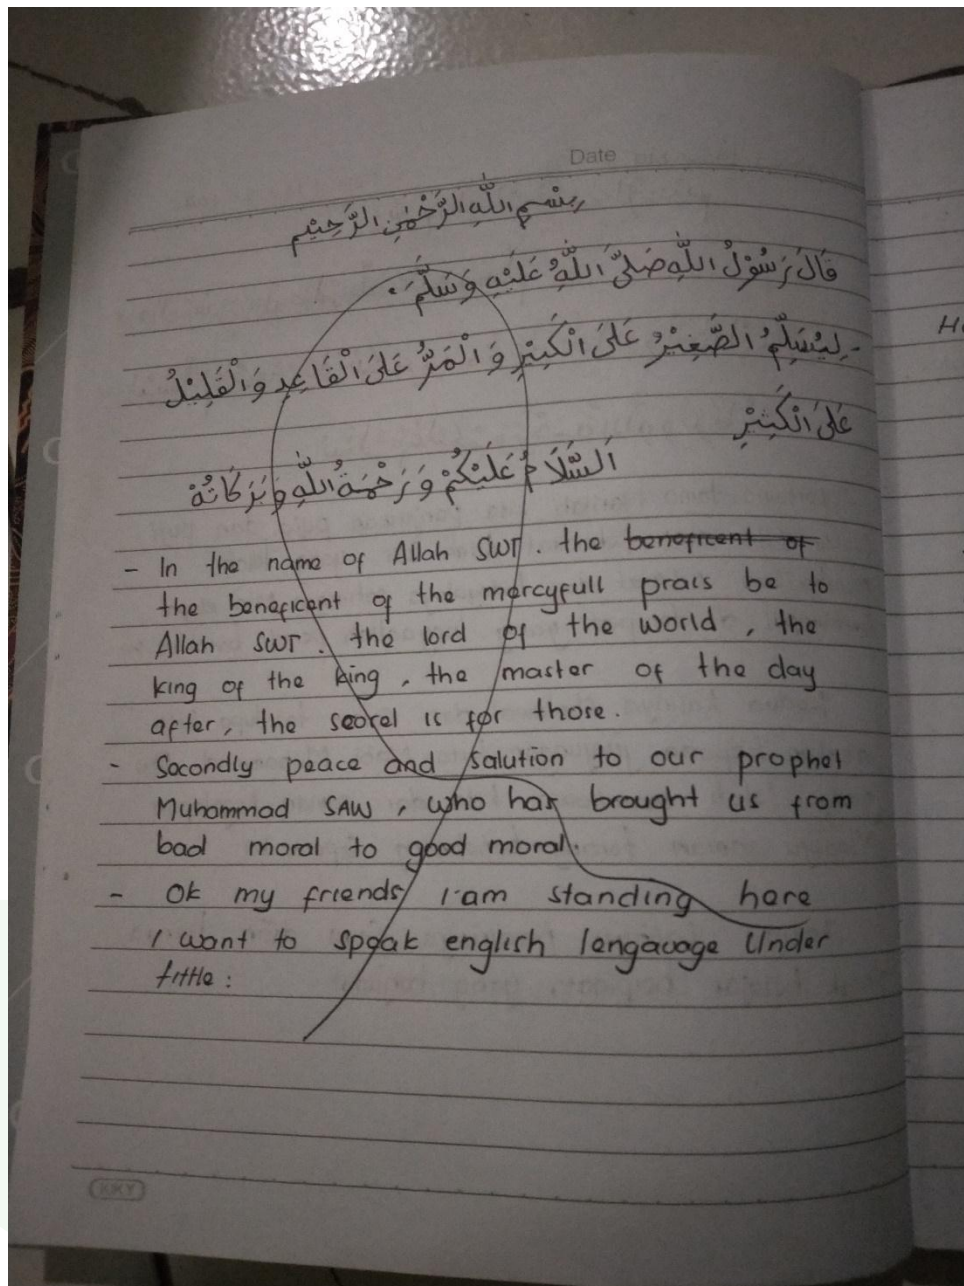 Date
بِسْمِ اللَّهِ الرَّحْمٰنِ الرَّحِيْمِ
قَالَ رَسُوْلُ اللَّهِ صَلىَّ اللَّهُ عَلَيْهِ وَسَلَّمَ :
- لِيُسَلِّمُ الصَّغِيْرُ عَلىَ الْكَبِيْرِ وَ الْمَرُّ عَلىَ الْقَاعِدِ وَالْقَلِيْلُ
عَلىَ الْكَثِيْرِ
اَلسَّلَامُ عَلَيْكُمْ وَرَحْمَةُ اللَّهِ وَبَرَكَاتُهْ
- In the name of Allah SWT. the beneficent of
the beneficent of the mercyfull prais be to
Allah SWT. the lord of the world, the
king of the king, the master of the day
after, the is for those.
- Secondly peace and salution to our prophet
Muhammad SAW, who has brought us from
bad moral to good moral.
- Ok my friends I am standing here
I want to speak english lengauage Under
tittle :
KKY
H